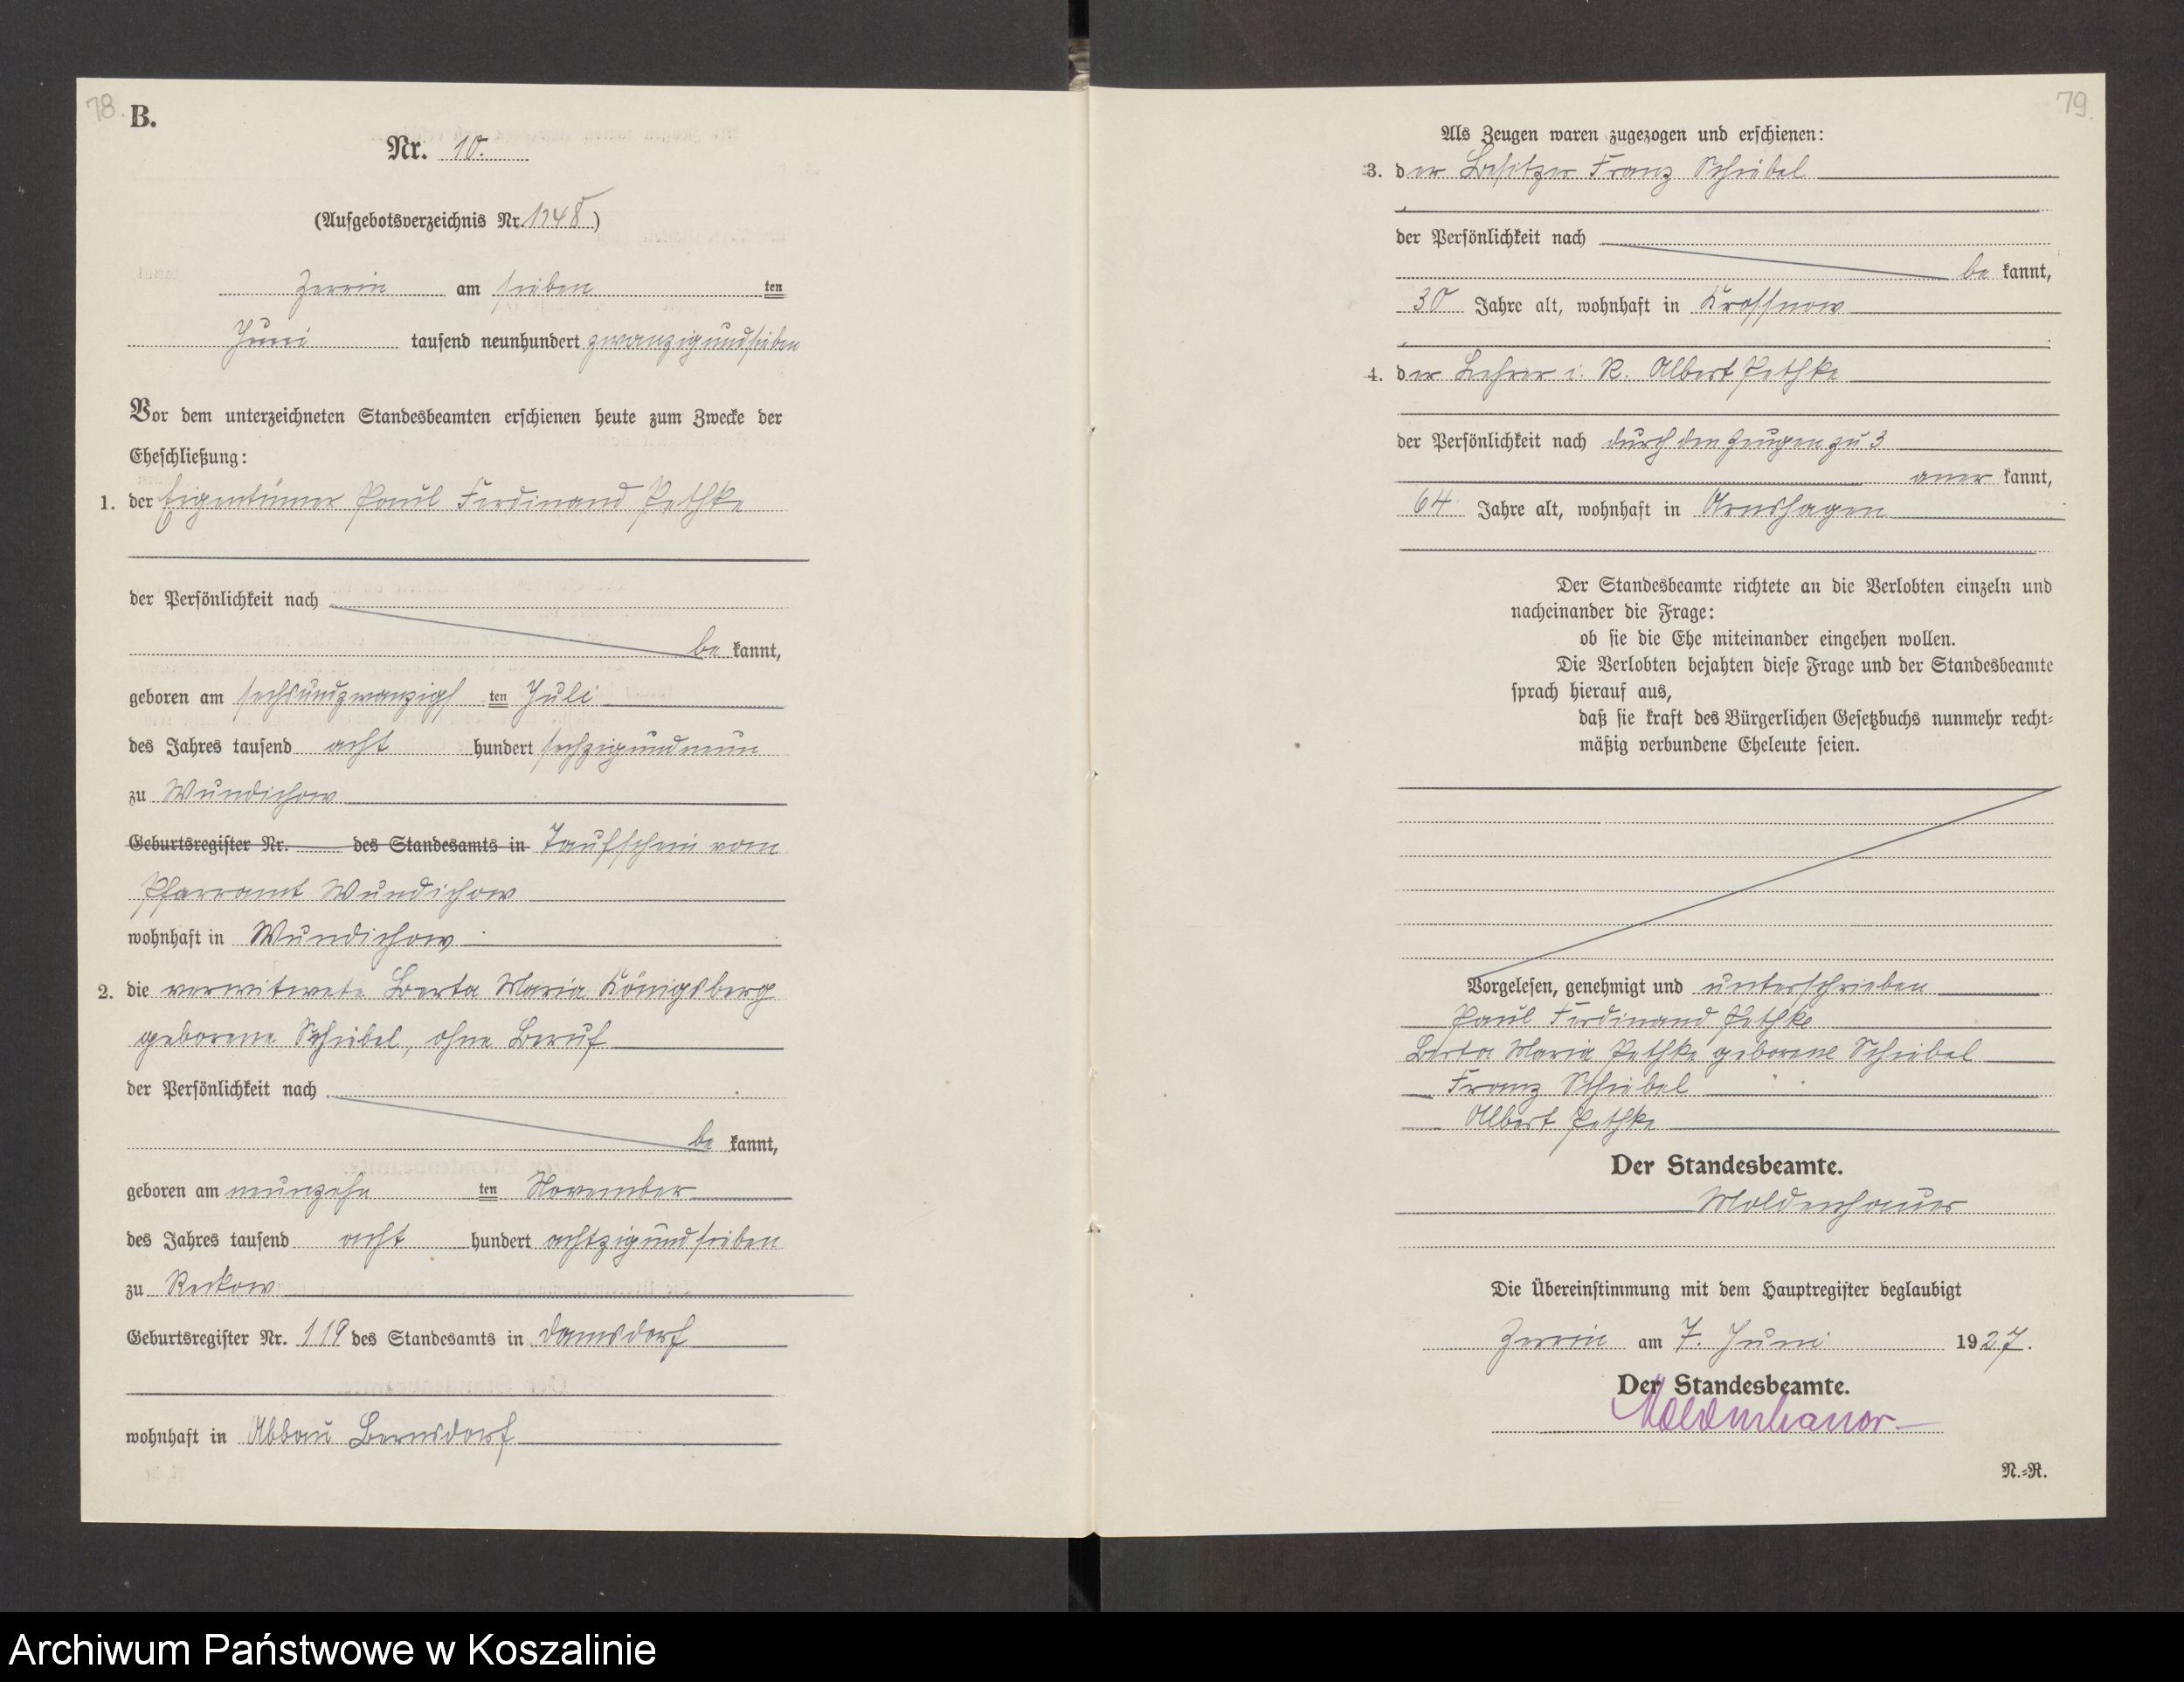 78.
B.
Nr. 10.
(Aufgebotsverzeichnis Nr. 1248)
Zerrin am sieben ten
Juni tausend neunhundert zwanzigundsieben
Vor dem unterzeichneten Standesbeamten erschienen heute zum Zwecke der
Eheschließung:
1. der Eigentümer Paul Ferdinand Pethke
der Persönlichkeit nach
be kannt,
geboren am sechsundzwanzigs ten Juli
des Jahres tausend acht hundert sechzigundneun
zu Wundichow
Geburtsregister Nr. des Standesamts in Taufschein vom
Pfarramt Wundichow
wohnhaft in Wundichow
2. die verwitwete Berta Maria Königsberg
geborene Schiebel, ohne Beruf
der Persönlichkeit nach
be kannt,
geboren am neunzehn ten November
des Jahres tausend acht hundert achtzigundsieben
zu Reckow
Geburtsregister Nr. 119 des Standesamts in Damsdorf
wohnhaft in Abbau Bernsdorf
79.
Als Zeugen waren zugezogen und erschienen:
3. der Besitzer Franz Schiebel
der Persönlichkeit nach
be kannt,
30 Jahre alt, wohnhaft in Krossnow
4. der Lehrer i. R. Albert Pethke
der Persönlichkeit nach durch den Zeugen zu 3
aner kannt,
64 Jahre alt, wohnhaft in Arnshagen
Der Standesbeamte richtete an die Verlobten einzeln und
nacheinander die Frage:
ob sie die Ehe miteinander eingehen wollen.
Die Verlobten bejahten diese Frage und der Standesbeamte
sprach hierauf aus,
daß sie kraft des Bürgerlichen Gesetzbuchs nunmehr recht-
mäßig verbundene Eheleute seien.
Vorgelesen, genehmigt und unterschrieben
Paul Ferdinand Pethke
Berta Maria Pethke geborene Schiebel
Franz Schiebel
Albert Pethke
Der Standesbeamte.
Moldenhauer
Die Übereinstimmung mit dem Hauptregister beglaubigt
Zerrin am 7. Juni 1927.
Der Standesbeamte.
Moldenhauer
N.-R.
Archiwum Państwowe w Koszalinie